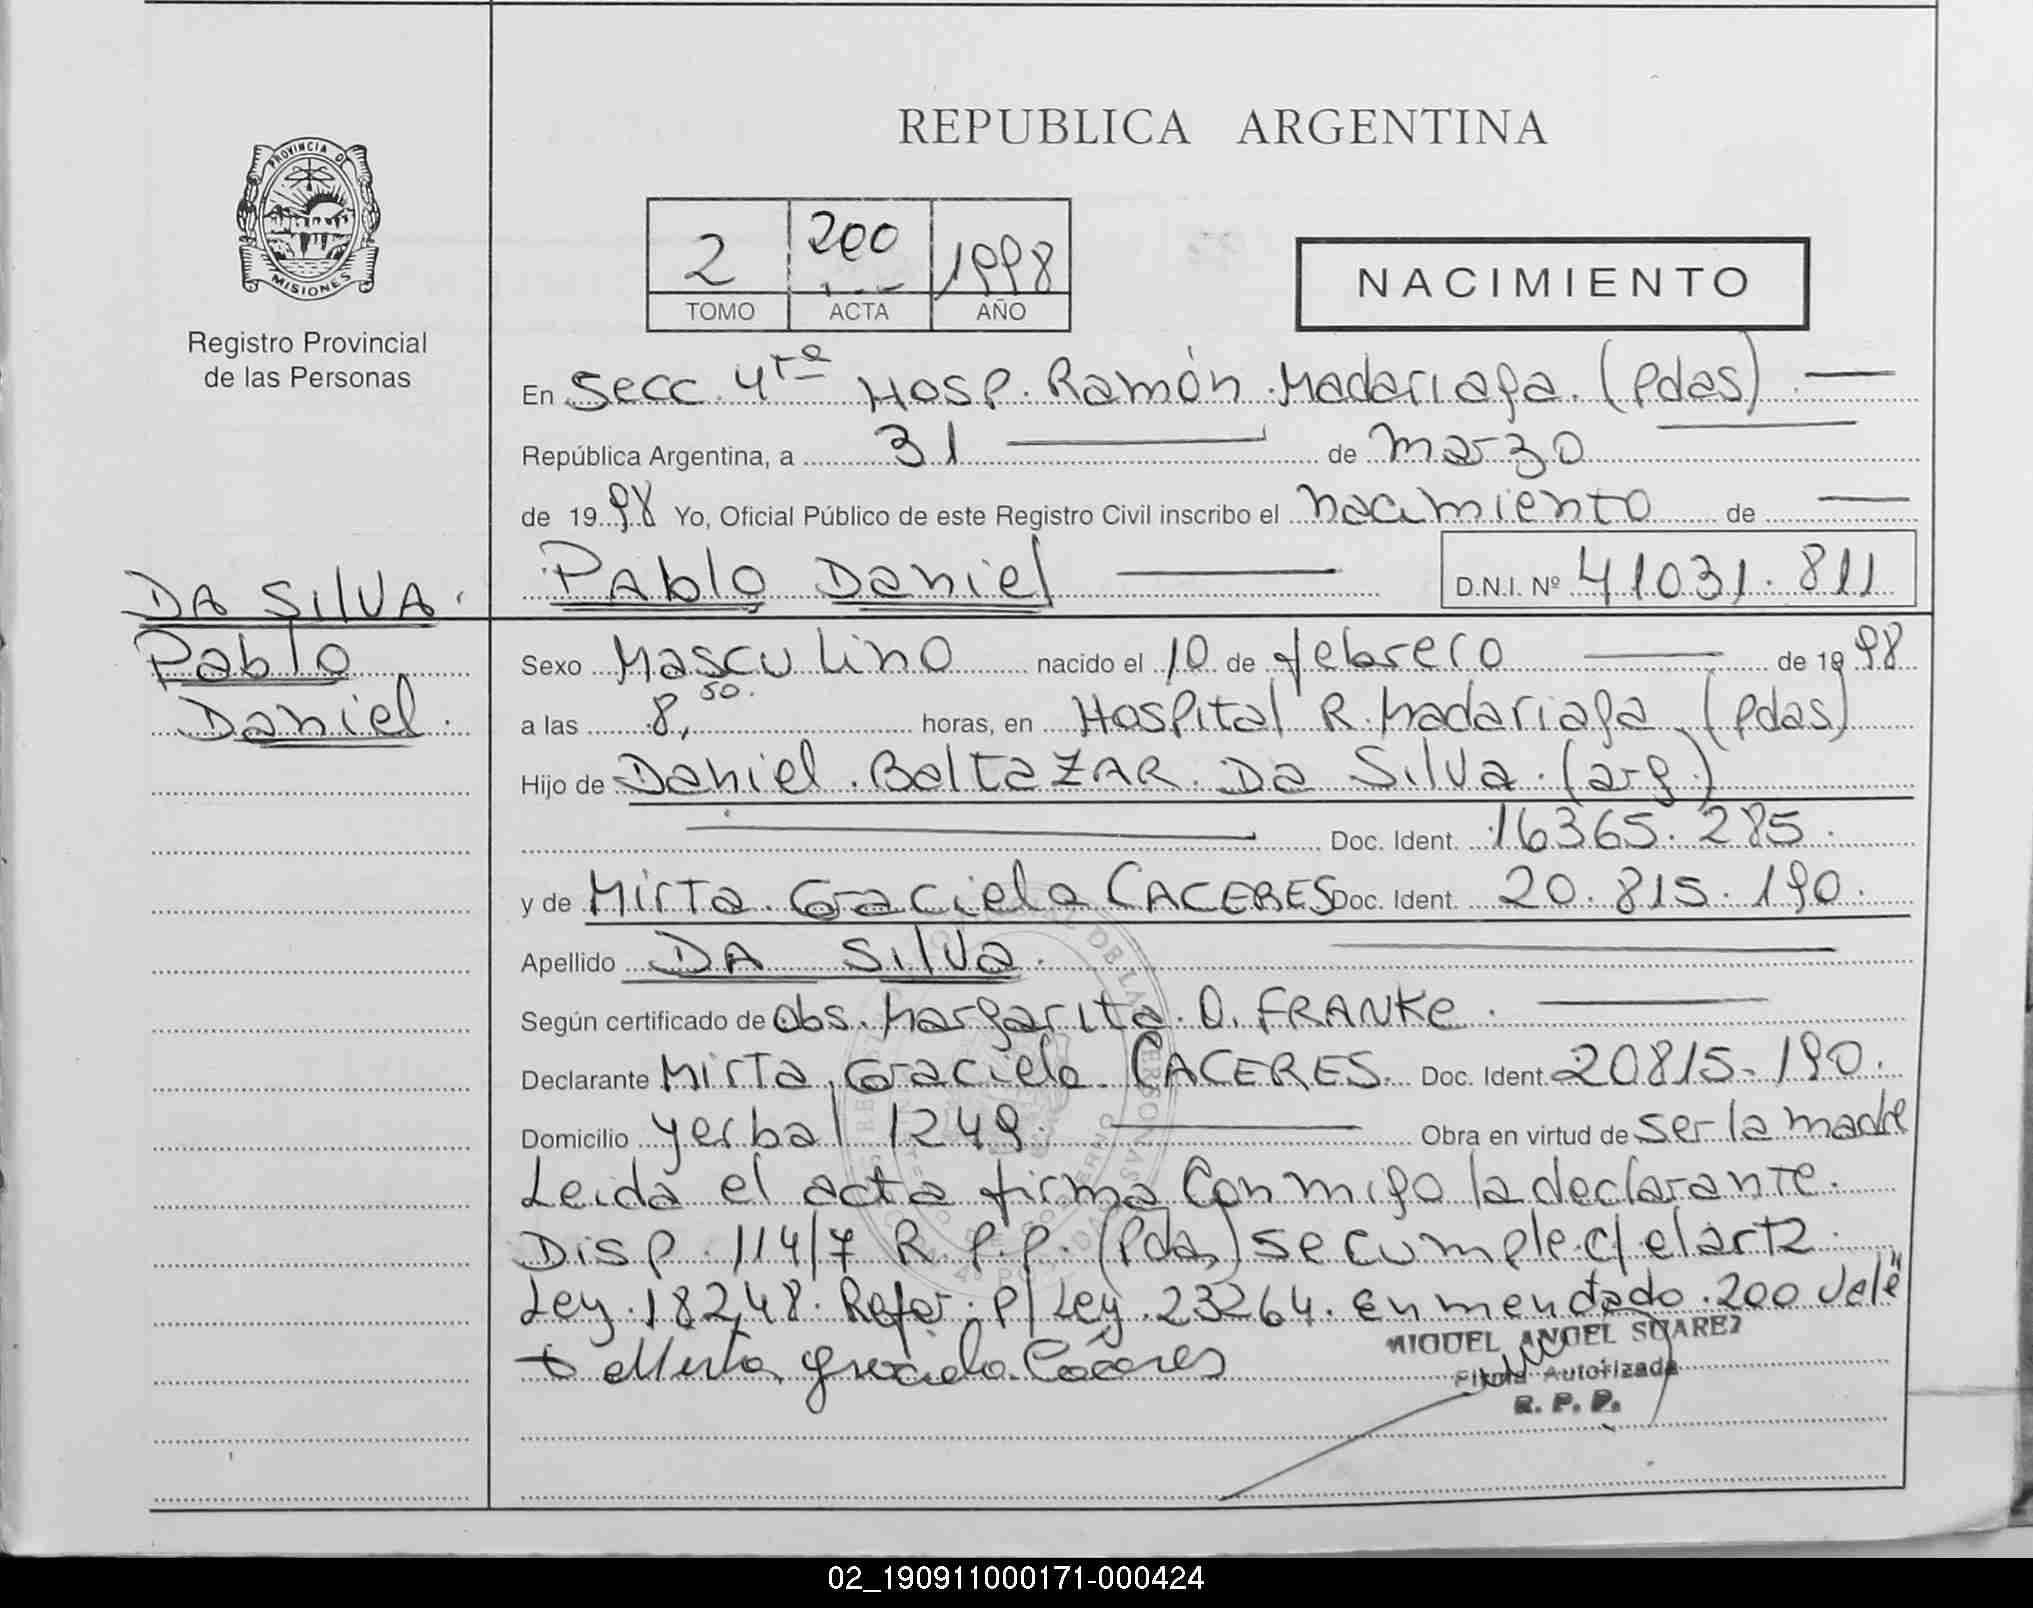 REPUBLICA ARGENTINA
PROVINCIA DE MISIONES
Registro Provincial
de las Personas
2 200 1998
TOMO ACTA AÑO
NACIMIENTO
En Secc. 4ta Hosp. Ramón Madariaga. (Pdas).
República Argentina, a 31 de Marzo
de 1998 Yo, Oficial Público de este Registro Civil inscribo el nacimiento de
DA SILVA.
Pablo
Daniel.
Pablo Daniel D.N.I. Nº 41031.811
Sexo Masculino nacido el 10 de febrero de 1998
a las 8,50. horas, en Hospital R. Madariaga (Pdas)
Hijo de Daniel Baltazar Da Silva. (arg.)
Doc. Ident. 16365.285.
y de Mirta Graciela CACERES Doc. Ident. 20.815.190.
Apellido DA SILVA.
Según certificado de Obs. Margarita O. FRANKE.
Declarante Mirta Graciela CACERES. Doc. Ident. 20815.190.
Domicilio Yerbal 1249. Obra en virtud de ser la madre
Leida el acta firma conmigo la declarante.
Disp. 114/7 R.P.P. (Pdas) se cumple c/ el art 2
Ley 18248. Refor. p/ Ley 23264. Enmendado. 200 Vale
Mirta Graciela Caceres
MIGUEL ANGEL SUAREZ
Firma Autorizada
R. P. P.
02_190911000171-000424